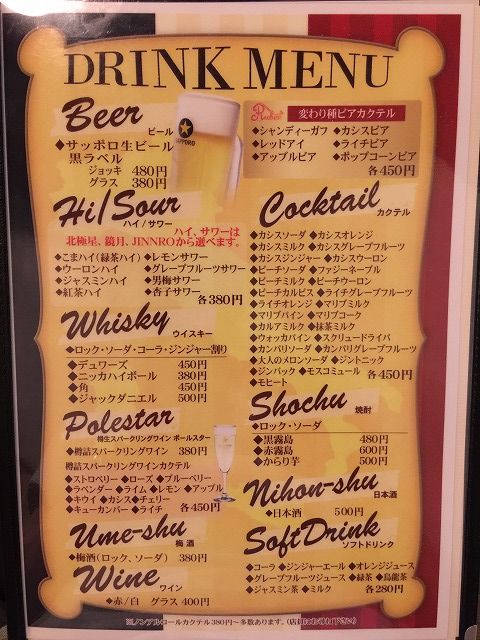 DRINK MENU
Beer
ビール
◆サッポロ生ビール
黒ラベル
ジョッキ 480円
グラス 380円
SAPPORO
変わり種ビアカクテル
◆シャンディーガフ ◆カシスビア
◆レッドアイ ◆ライチビア
◆アップルビア ◆ポップコーンビア
各450円
Hi/Sour
ハイ/サワー
ハイ、サワーは
北極星、鏡月、JINNROから選べます。
◆こまハイ(緑茶ハイ) ◆レモンサワー
◆ウーロンハイ ◆グレープフルーツサワー
◆ジャスミンハイ ◆男梅サワー
◆紅茶ハイ ◆杏子サワー
各380円
Whisky
ウイスキー
◆ロック・ソーダ・コーラ・ジンジャー割り
◆デュワーズ 450円
◆ニッカハイボール 380円
◆角 450円
◆ジャックダニエル 500円
Polestar
樽生スパークリングワイン ポールスター
樽詰スパークリングワイン 380円
樽詰スパークリングワインカクテル
◆ストロベリー ◆ローズ ◆ブルーベリー
◆ラベンダー ◆ライム ◆レモン ◆アップル
◆キウイ ◆カシス ◆チェリー
◆キューカンバー ◆ライチ 各450円
Ume-shu
梅酒
◆梅酒(ロック、ソーダ) 380円
Wine
ワイン
◆赤/白 グラス 400円
Cocktail
カクテル
◆カシスソーダ ◆カシスオレンジ
◆カシスミルク ◆カシスグレープフルーツ
◆カシスジンジャー ◆カシスウーロン
◆ピーチソーダ ◆ファジーネーブル
◆ピーチミルク ◆ピーチウーロン
◆ピーチカルピス ◆ライチグレープフルーツ
◆ライチオレンジ ◆マリブミルク
◆マリブパイン ◆マリブコーク
◆カルアミルク ◆抹茶ミルク
◆ウォッカパイン ◆スクリュードライバ
◆カンパリソーダ ◆カンパリグレープフルーツ
◆大人のメロンソーダ ◆ジントニック
◆ジンバック ◆モスコミュール
◆モヒート 各450円
Shochu
焼酎
◆ロック・ソーダ
◆黒霧島 480円
◆赤霧島 600円
◆からり芋 500円
Nihon-shu
日本酒
◆日本酒 500円
SoftDrink
ソフトドリンク
◆コーラ ◆ジンジャーエール ◆オレンジジュース
◆グレープフルーツジュース ◆緑茶 ◆烏龍茶
◆ジャスミン茶 ◆ミルク 各280円
※ノンアルコールカクテル380円〜多数あります。